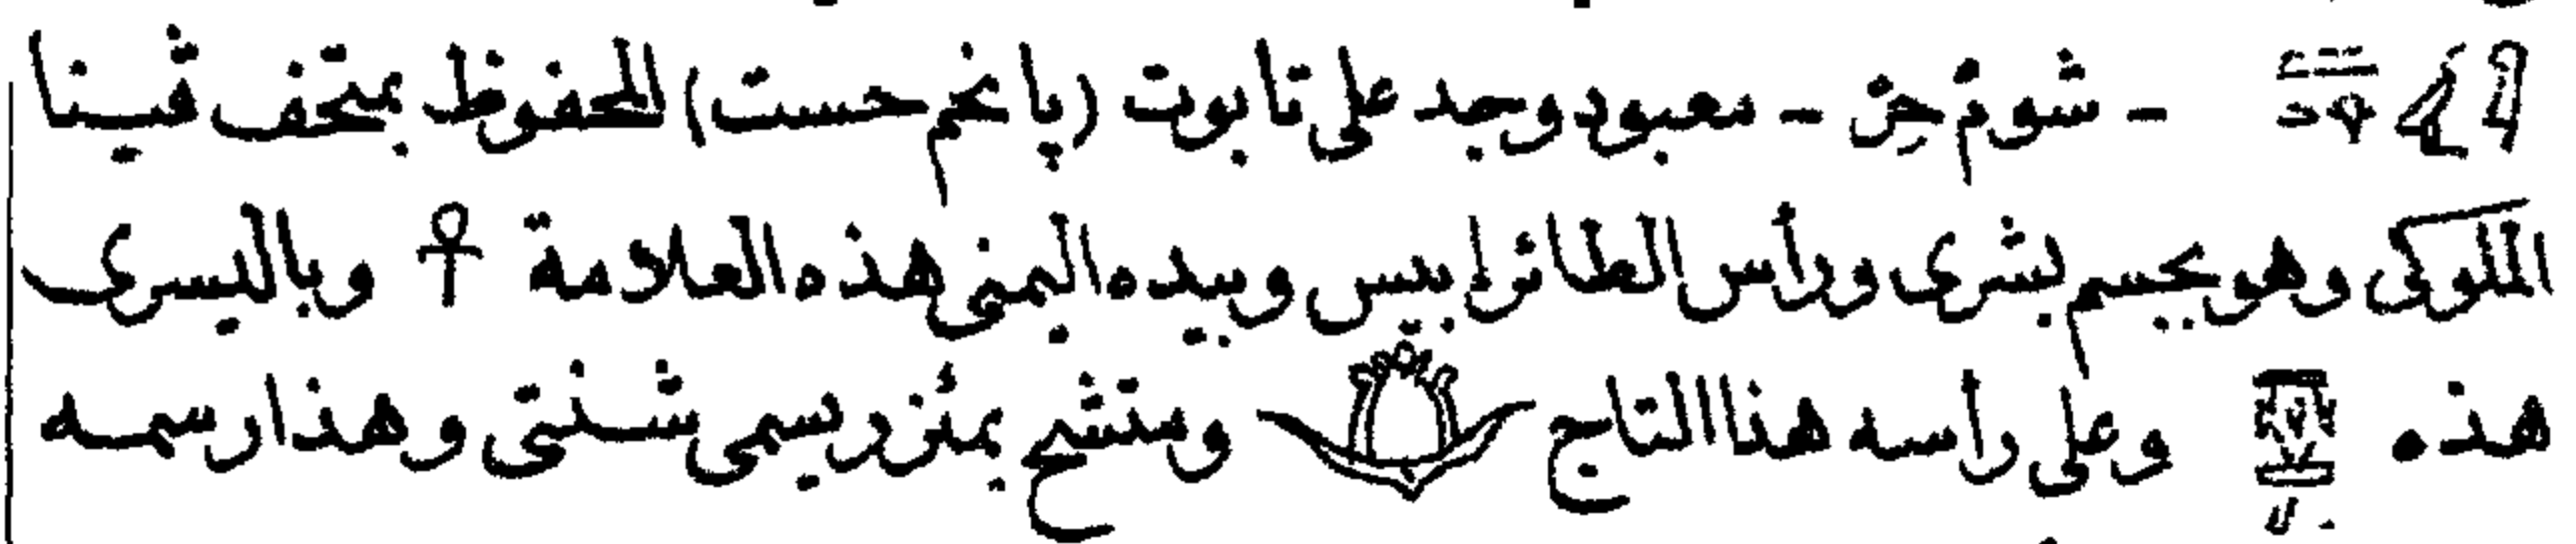 - شو مْ حِرْ - معبود وجد على تابوت (پانخم حست) المحفوظ بمتحف ڤينا
الملوكى وهو بجسم بشرى ورأس الطائر إبيس وبيده اليمنى هذه العلامة ☥ وباليسرى
هذه وعلى رأسه هذا التاج ومتشح بمئزر يسمى شنتى وهذا رسمه